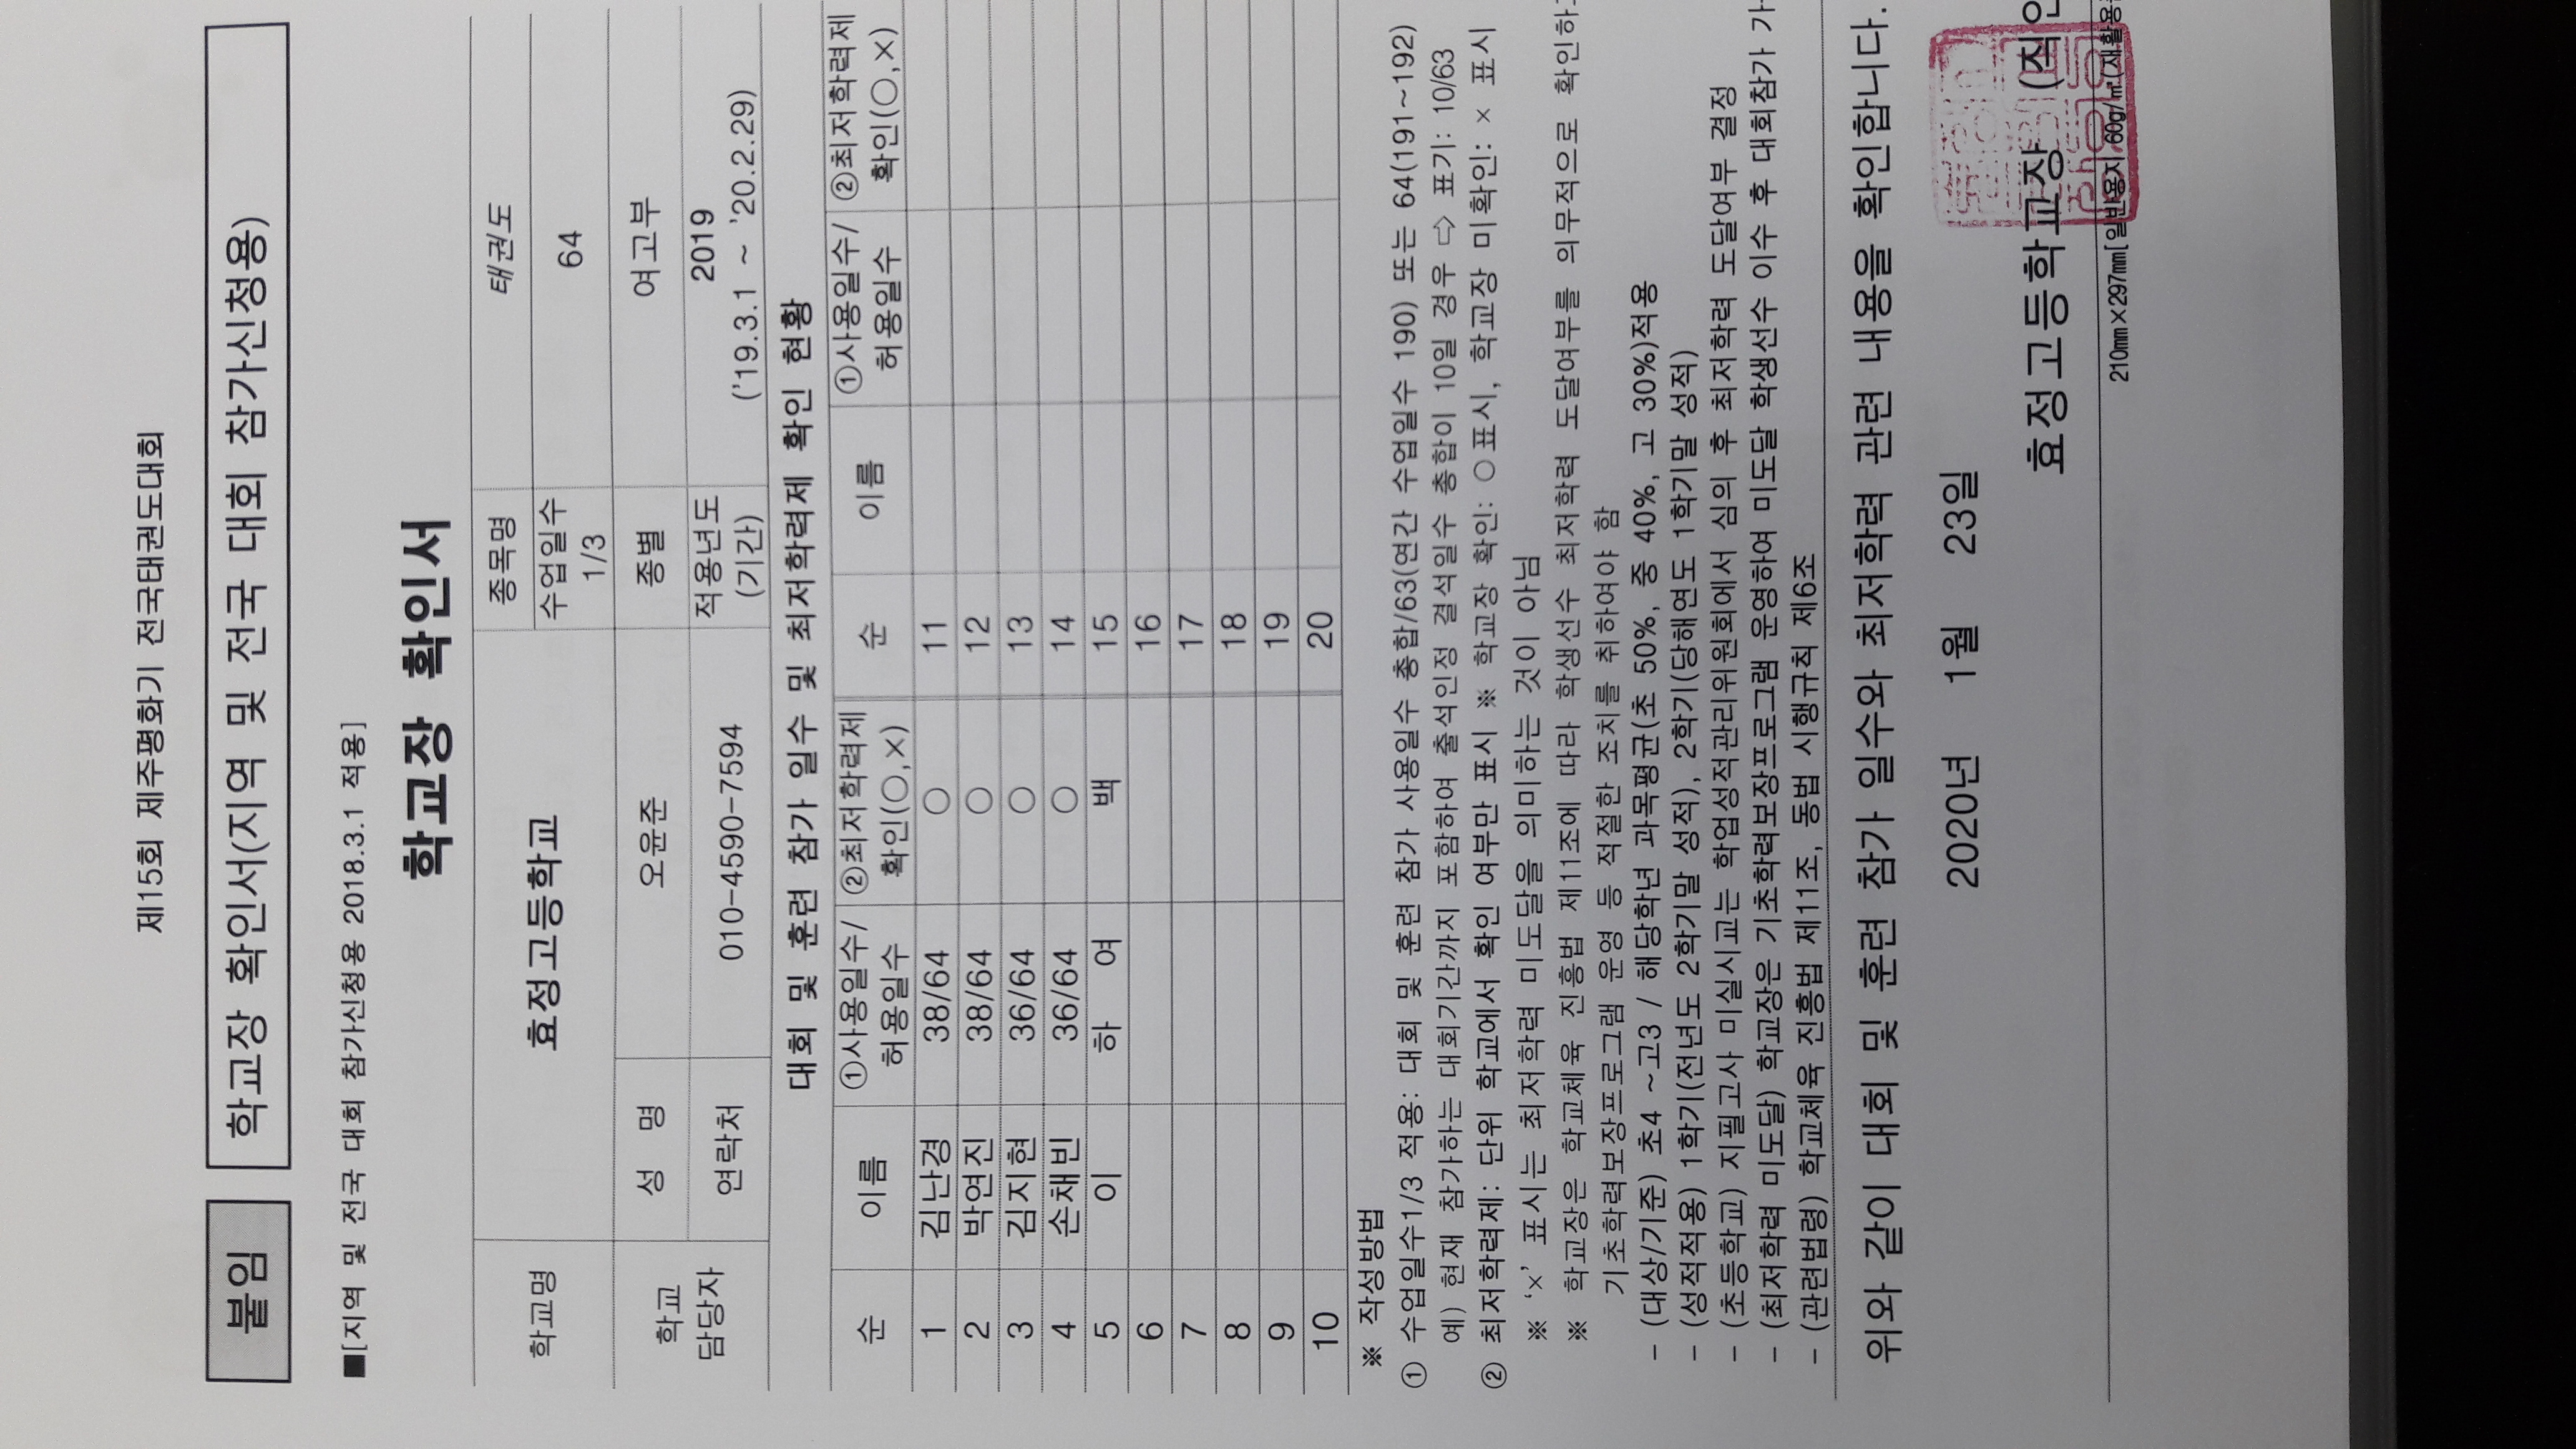 제15회 제주평화기 전국태권도대회
붙임 학교장 확인서(지역 및 전국 대회 참가신청용)
■[지역 및 전국 대회 참가신청용 2018.3.1 적용]
학교장 확인서
학교명 효정고등학교 종목명 태권도
수업일수 1/3 64
학교 담당자 성 명 오윤준 종별 여고부
연락처 010-4590-7594 적용년도 (기간) 2019 ('19.3.1 ~ '20.2.29)
대회 및 훈련 참가 일수 및 최저학력제 확인 현황
순 이름 ①사용일수/허용일수 ②최저학력제 확인(○,×) 순 이름 ①사용일수/허용일수 ②최저학력제 확인(○,×)
1 김난경 38/64 ○ 11
2 박연진 38/64 ○ 12
3 김지현 36/64 ○ 13
4 손채빈 36/64 ○ 14
5 이 하 여 백 15
6 16
7 17
8 18
9 19
10 20
※ 작성방법
① 수업일수1/3 적용: 대회 및 훈련 참가 사용일수 총합/63(연간 수업일수 190) 또는 64(191~192)
예) 현재 참가하는 대회기간까지 포함하여 출석인정 결석일수 총합이 10일 경우 ⇨ 표기: 10/63
② 최저학력제: 단위 학교에서 확인 여부만 표시 ※ 학교장 확인: ○표시, 학교장 미확인: × 표시
※ ‘×’ 표시는 최저학력 미도달을 의미하는 것이 아님
※ 학교장은 학교체육 진흥법 제11조에 따라 학생선수 최저학력 도달여부를 의무적으로 확인하고
기초학력보장프로그램 운영 등 적절한 조치를 취하여야 함
- (대상/기준) 초4 ~고3 / 해당학년 과목평균(초 50%, 중 40%, 고 30%)적용
- (성적적용) 1학기(전년도 2학기말 성적), 2학기(당해연도 1학기말 성적)
- (초등학교) 지필고사 미실시교는 학업성적관리위원회에서 심의 후 최저학력 도달여부 결정
- (최저학력 미도달) 학교장은 기초학력보장프로그램 운영하여 미도달 학생선수 이수 후 대회참가 가
- (관련법령) 학교체육 진흥법 제11조, 동법 시행규칙 제6조
위와 같이 대회 및 훈련 참가 일수와 최저학력 관련 내용을 확인합니다.
2020년 1월 23일
효정고등학교장 (직인
210㎜×297㎜[일반용지 60g/㎡(재활용